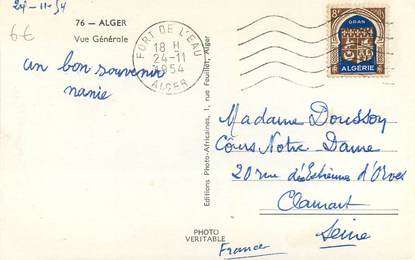 24-11-54
6€
76 — ALGER
Vue Générale
un bon souvenir
nanie
FORT DE L'EAU
18 H
24-11
1954
ALGER
8F
ORAN
ALGÉRIE
Editions Photo-Africaines, 1, rue Feuillet, Alger
PHOTO
VERITABLE
Madame Dousson
Cours Notre-Dame
20 rue d'Estienne d'Orves
Clamart
Seine
France